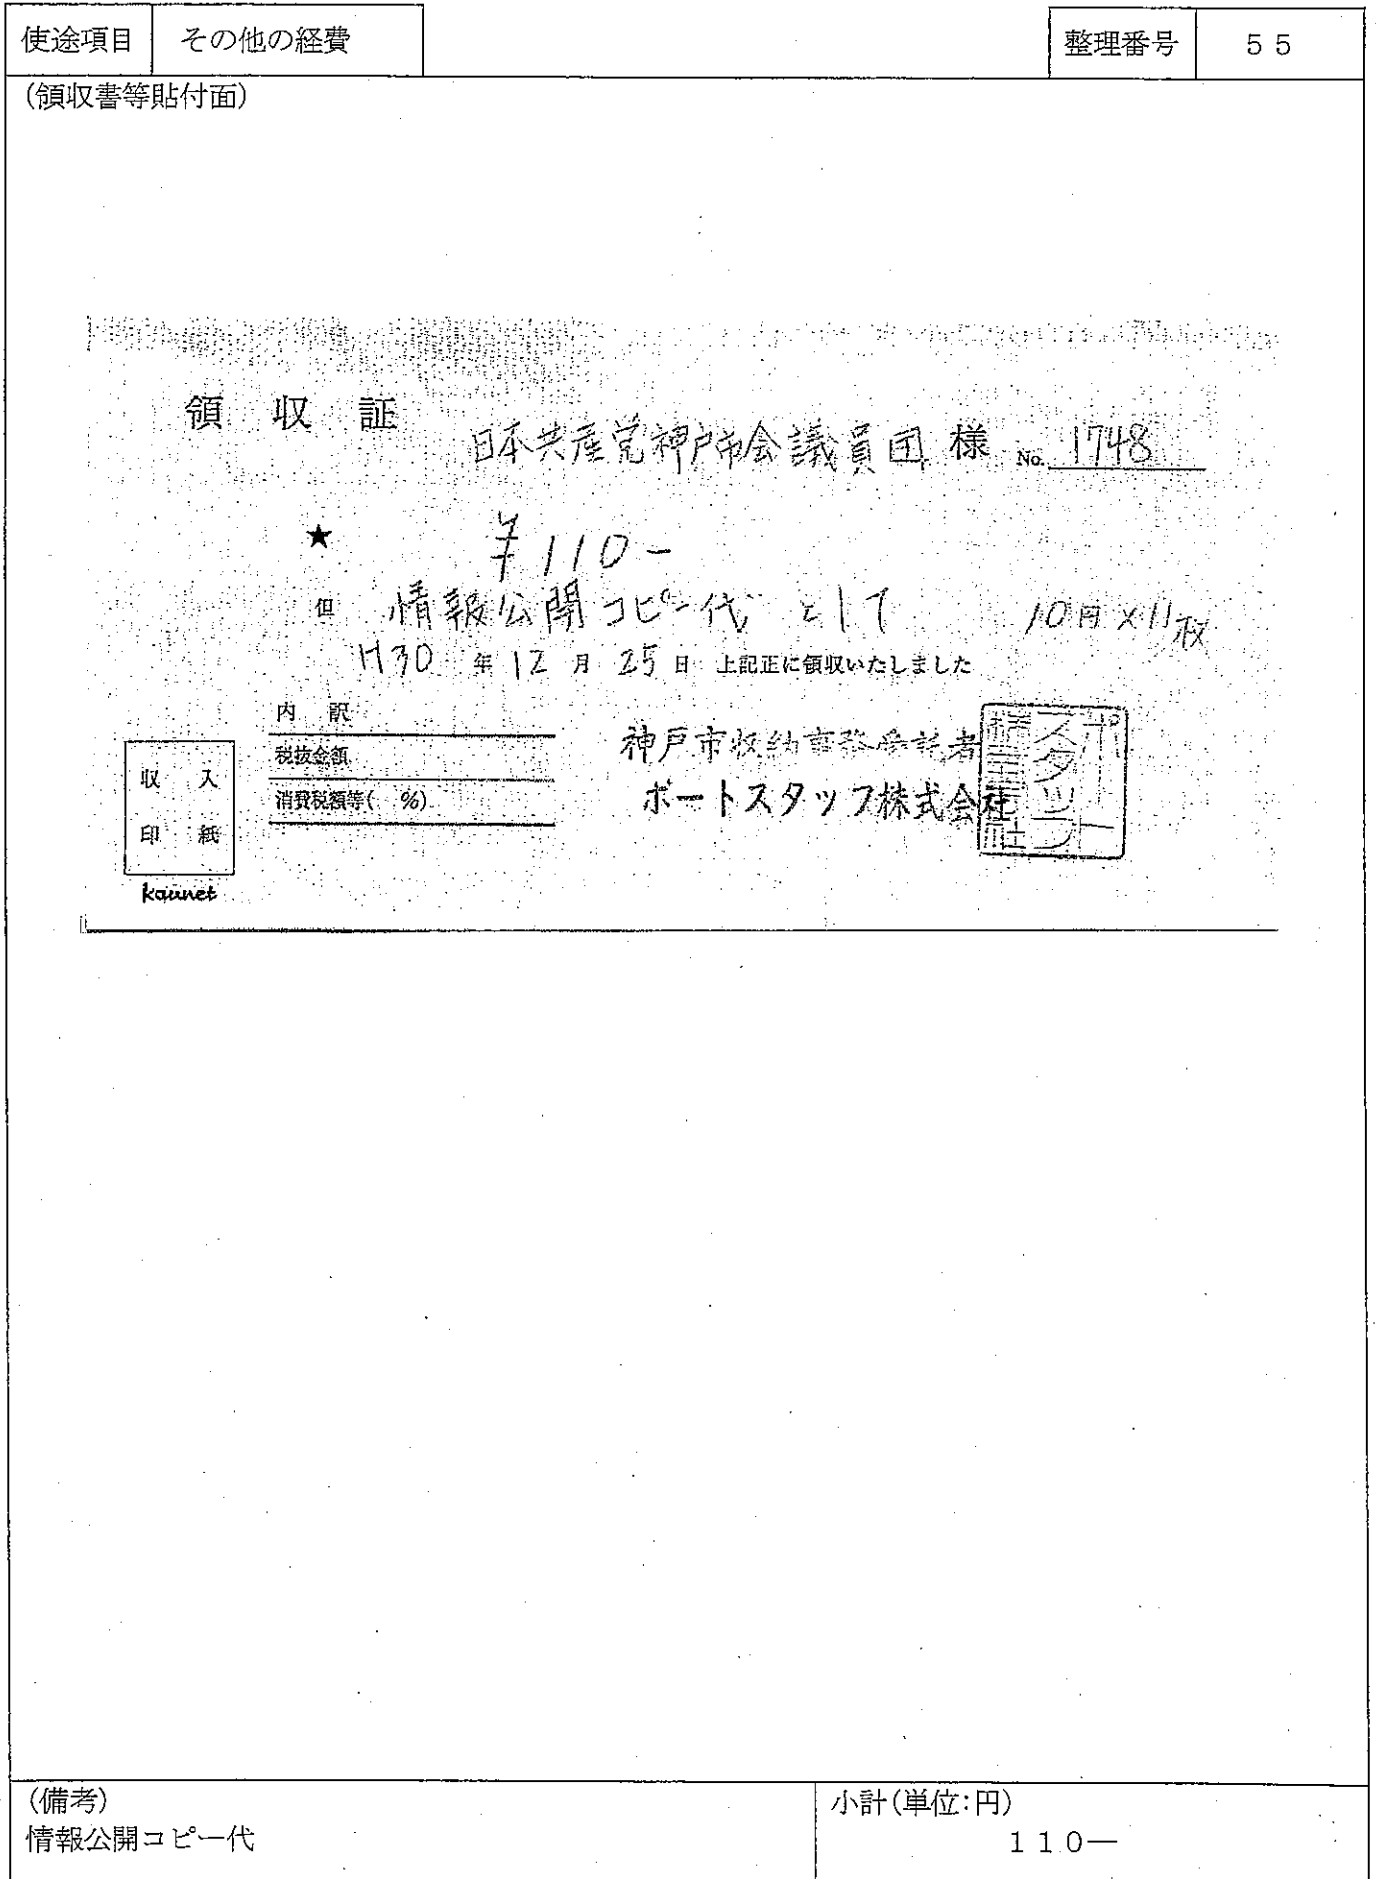 使途項目 その他の経費 整理番号 55
(領収書等貼付面)
領 収 証
日本共産党神戸市会議員団 様 No. 1748
★ ¥110-
但 情報公開コピー代 として 10円×11枚
H30 年 12 月 25 日 上記正に領収いたしました
内 訳
税抜金額
消費税額等( %)
収 入
印 紙
kaunet
神戸市収納事務受託者
ポートスタッフ株式会社
ポート
スタッフ
株式会社
(備考)
情報公開コピー代
小計(単位:円)
110―